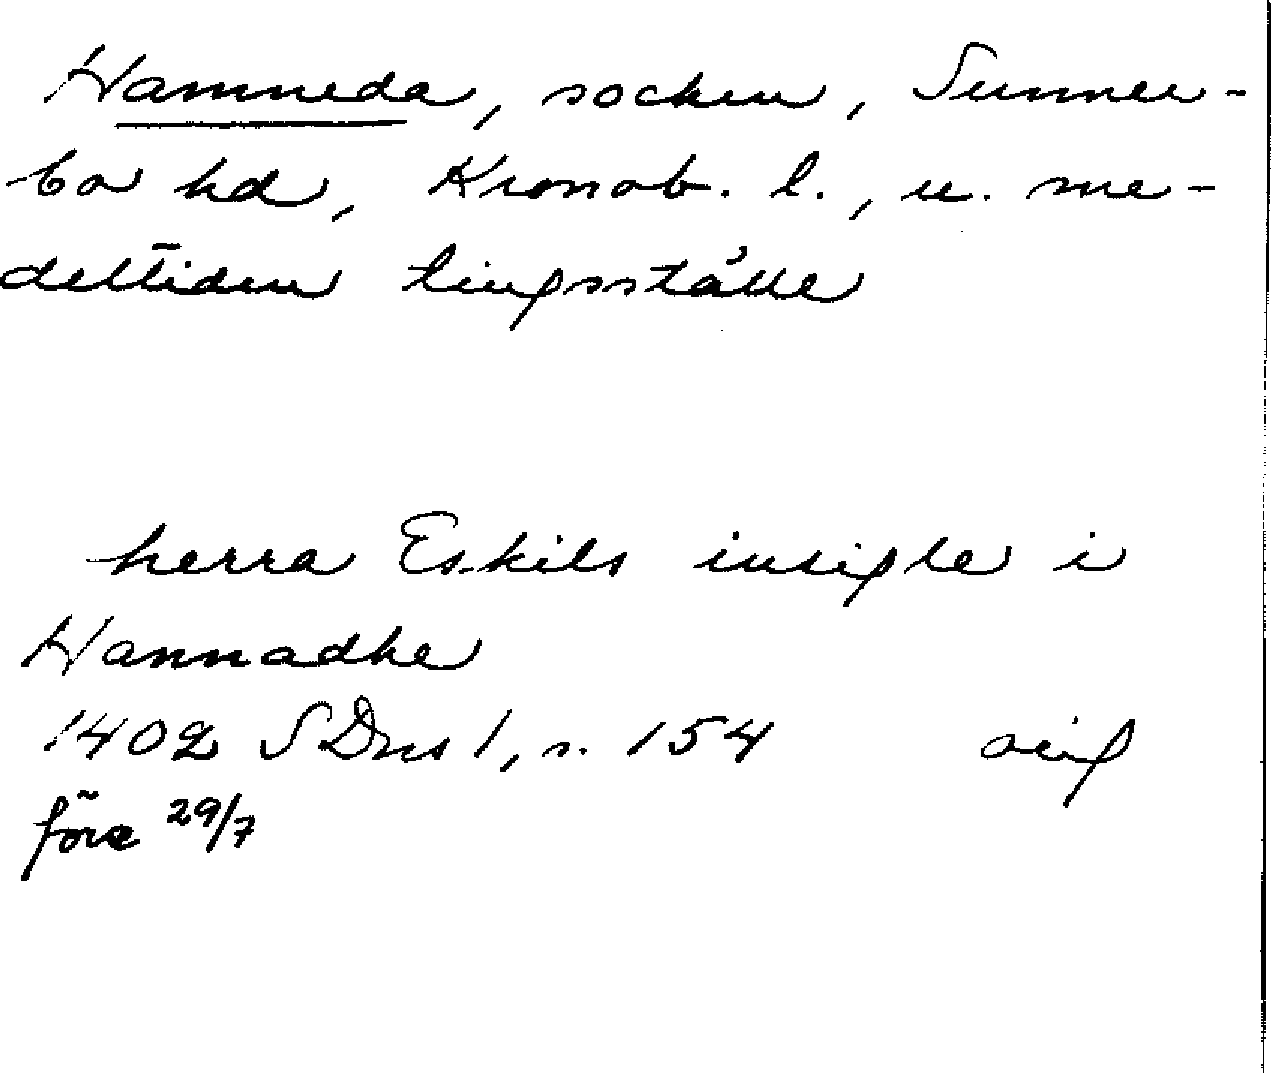 Hamneda, socken, Sunner-
bo hd, Kronob. l., u. me-
deltiden tingsställe
herra Eskils insigle i
Hannadhe
1402 SDns 1, s. 154 orig
före 29/7